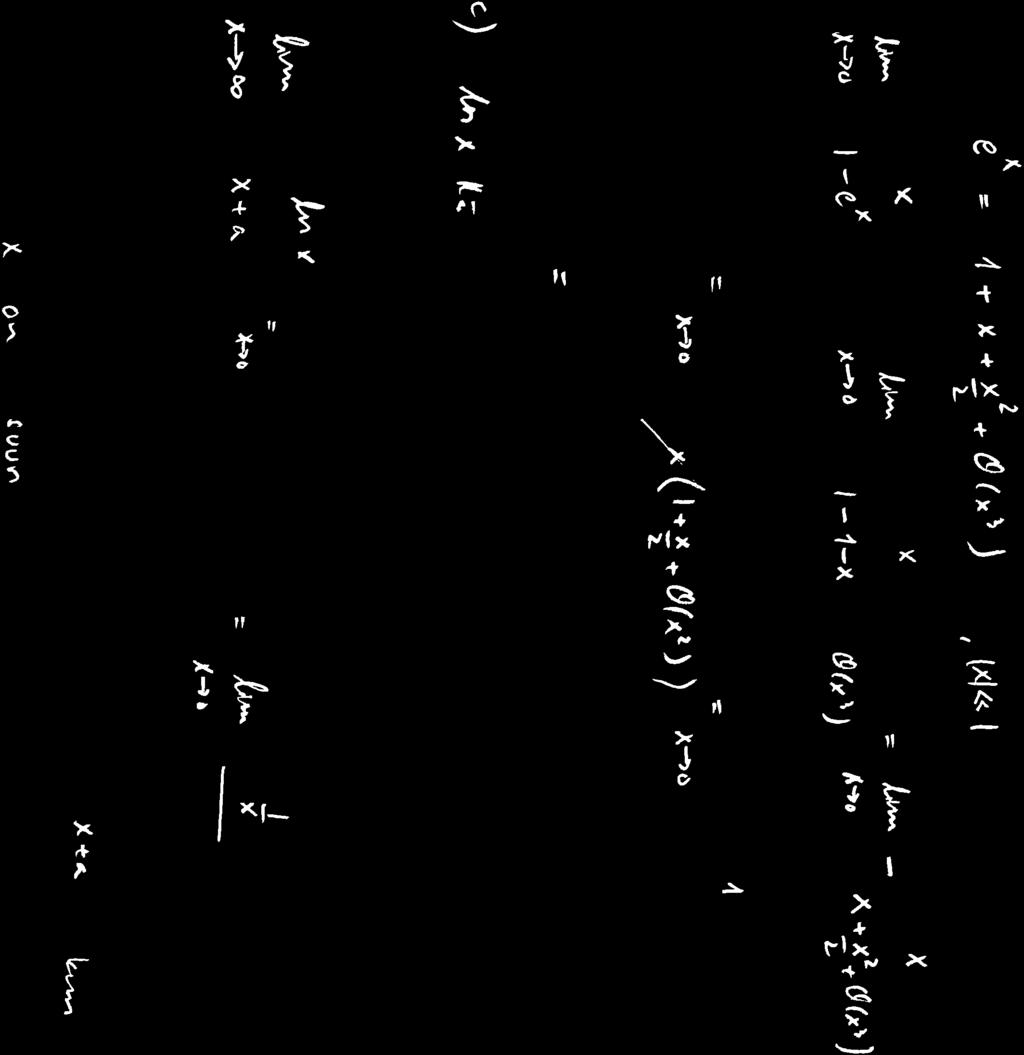 e^x = 1 + x + x^2/2 + O(x^3) , |x| ≪ 1
lim x→0 x / 1 - e^x lim x→0 x / 1 - 1 - x O(x^3) = lim x→0 - x / x + x^2/2 + O(x^3)
= x→0 x (1 + x/2 + O(x^2)) = x→0 1
=
c) ln x
lim x→∞ ln x / x + a = x→0 = lim x→0 1/x
x + a kun
x on suun